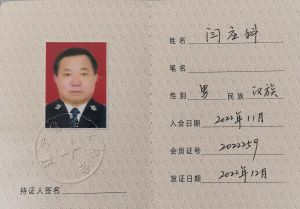 姓名 闫应科
笔名
性别 男 民族 汉族
入会日期 2022年11月
会员证号 2022259
发证日期 2022年12月
持证人签名